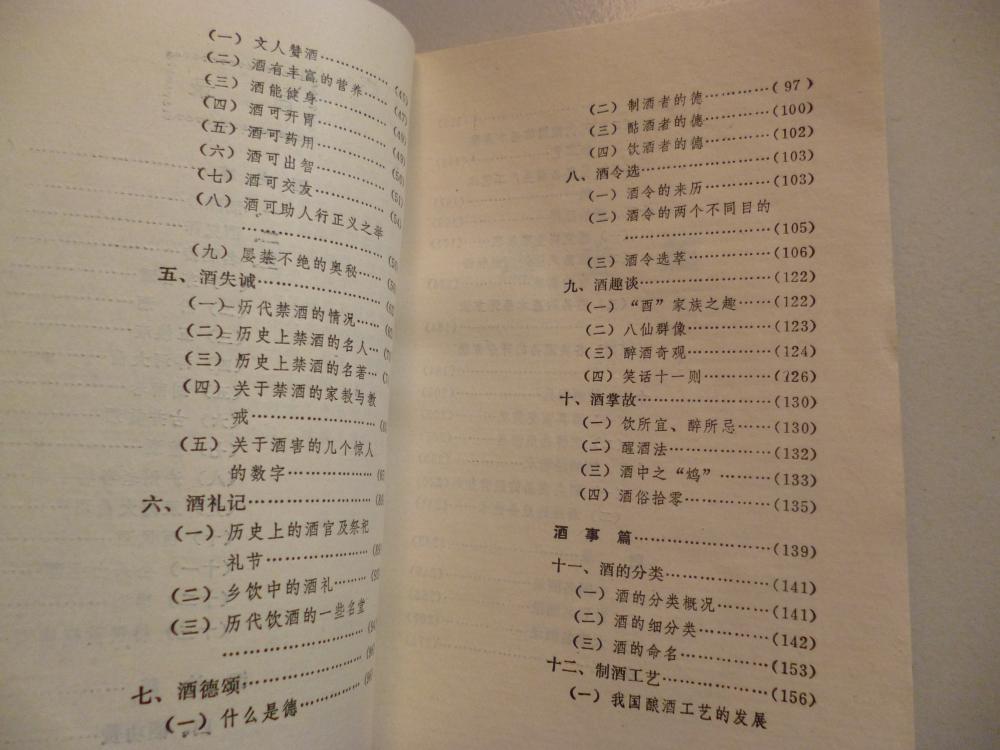 (一) 文人赞酒……………(45)
(二) 酒有丰富的营养……(47)
(三) 酒能健身……………(48)
(四) 酒可开胃……………(49)
(五) 酒可药用……………(50)
(六) 酒可出智……………(51)
(七) 酒可交友……………(54)
(八) 酒可助人行正义之举
(九) 屡禁不绝的奥秘……
五、酒失诫………………
(一) 历代禁酒的情况……
(二) 历史上禁酒的名人…
(三) 历史上禁酒的名著…
(四) 关于禁酒的家教与教
戒………………
(五) 关于酒害的几个惊人
的数字………………
六、酒礼记………………
(一) 历史上的酒官及祭祀
礼节………………
(二) 乡饮中的酒礼………
(三) 历代饮酒的一些名堂
七、酒德颂………………
(一) 什么是德……………
…(97)
(二) 制酒者的德…………(100)
(三) 酤酒者的德…………(102)
(四) 饮酒者的德…………(103)
八、酒令选………………(103)
(一) 酒令的来历…………
(二) 酒令的两个不同目的
………………(105)
(三) 酒令选萃……………(106)
九、酒趣谈………………(122)
(一) “酉”家族之趣……(122)
(二) 八仙群像……………(123)
(三) 醉酒奇观……………(124)
(四) 笑话十一则…………(126)
十、酒掌故………………(130)
(一) 饮所宜、醉所忌……(130)
(二) 醒酒法………………(132)
(三) 酒中之“鸩”………(133)
(四) 酒俗拾零……………(135)
酒事篇………………(139)
十一、酒的分类…………(141)
(一) 酒的分类概况………(141)
(二) 酒的细分类…………(142)
(三) 酒的命名……………(153)
十二、制酒工艺…………(156)
(一) 我国酿酒工艺的发展